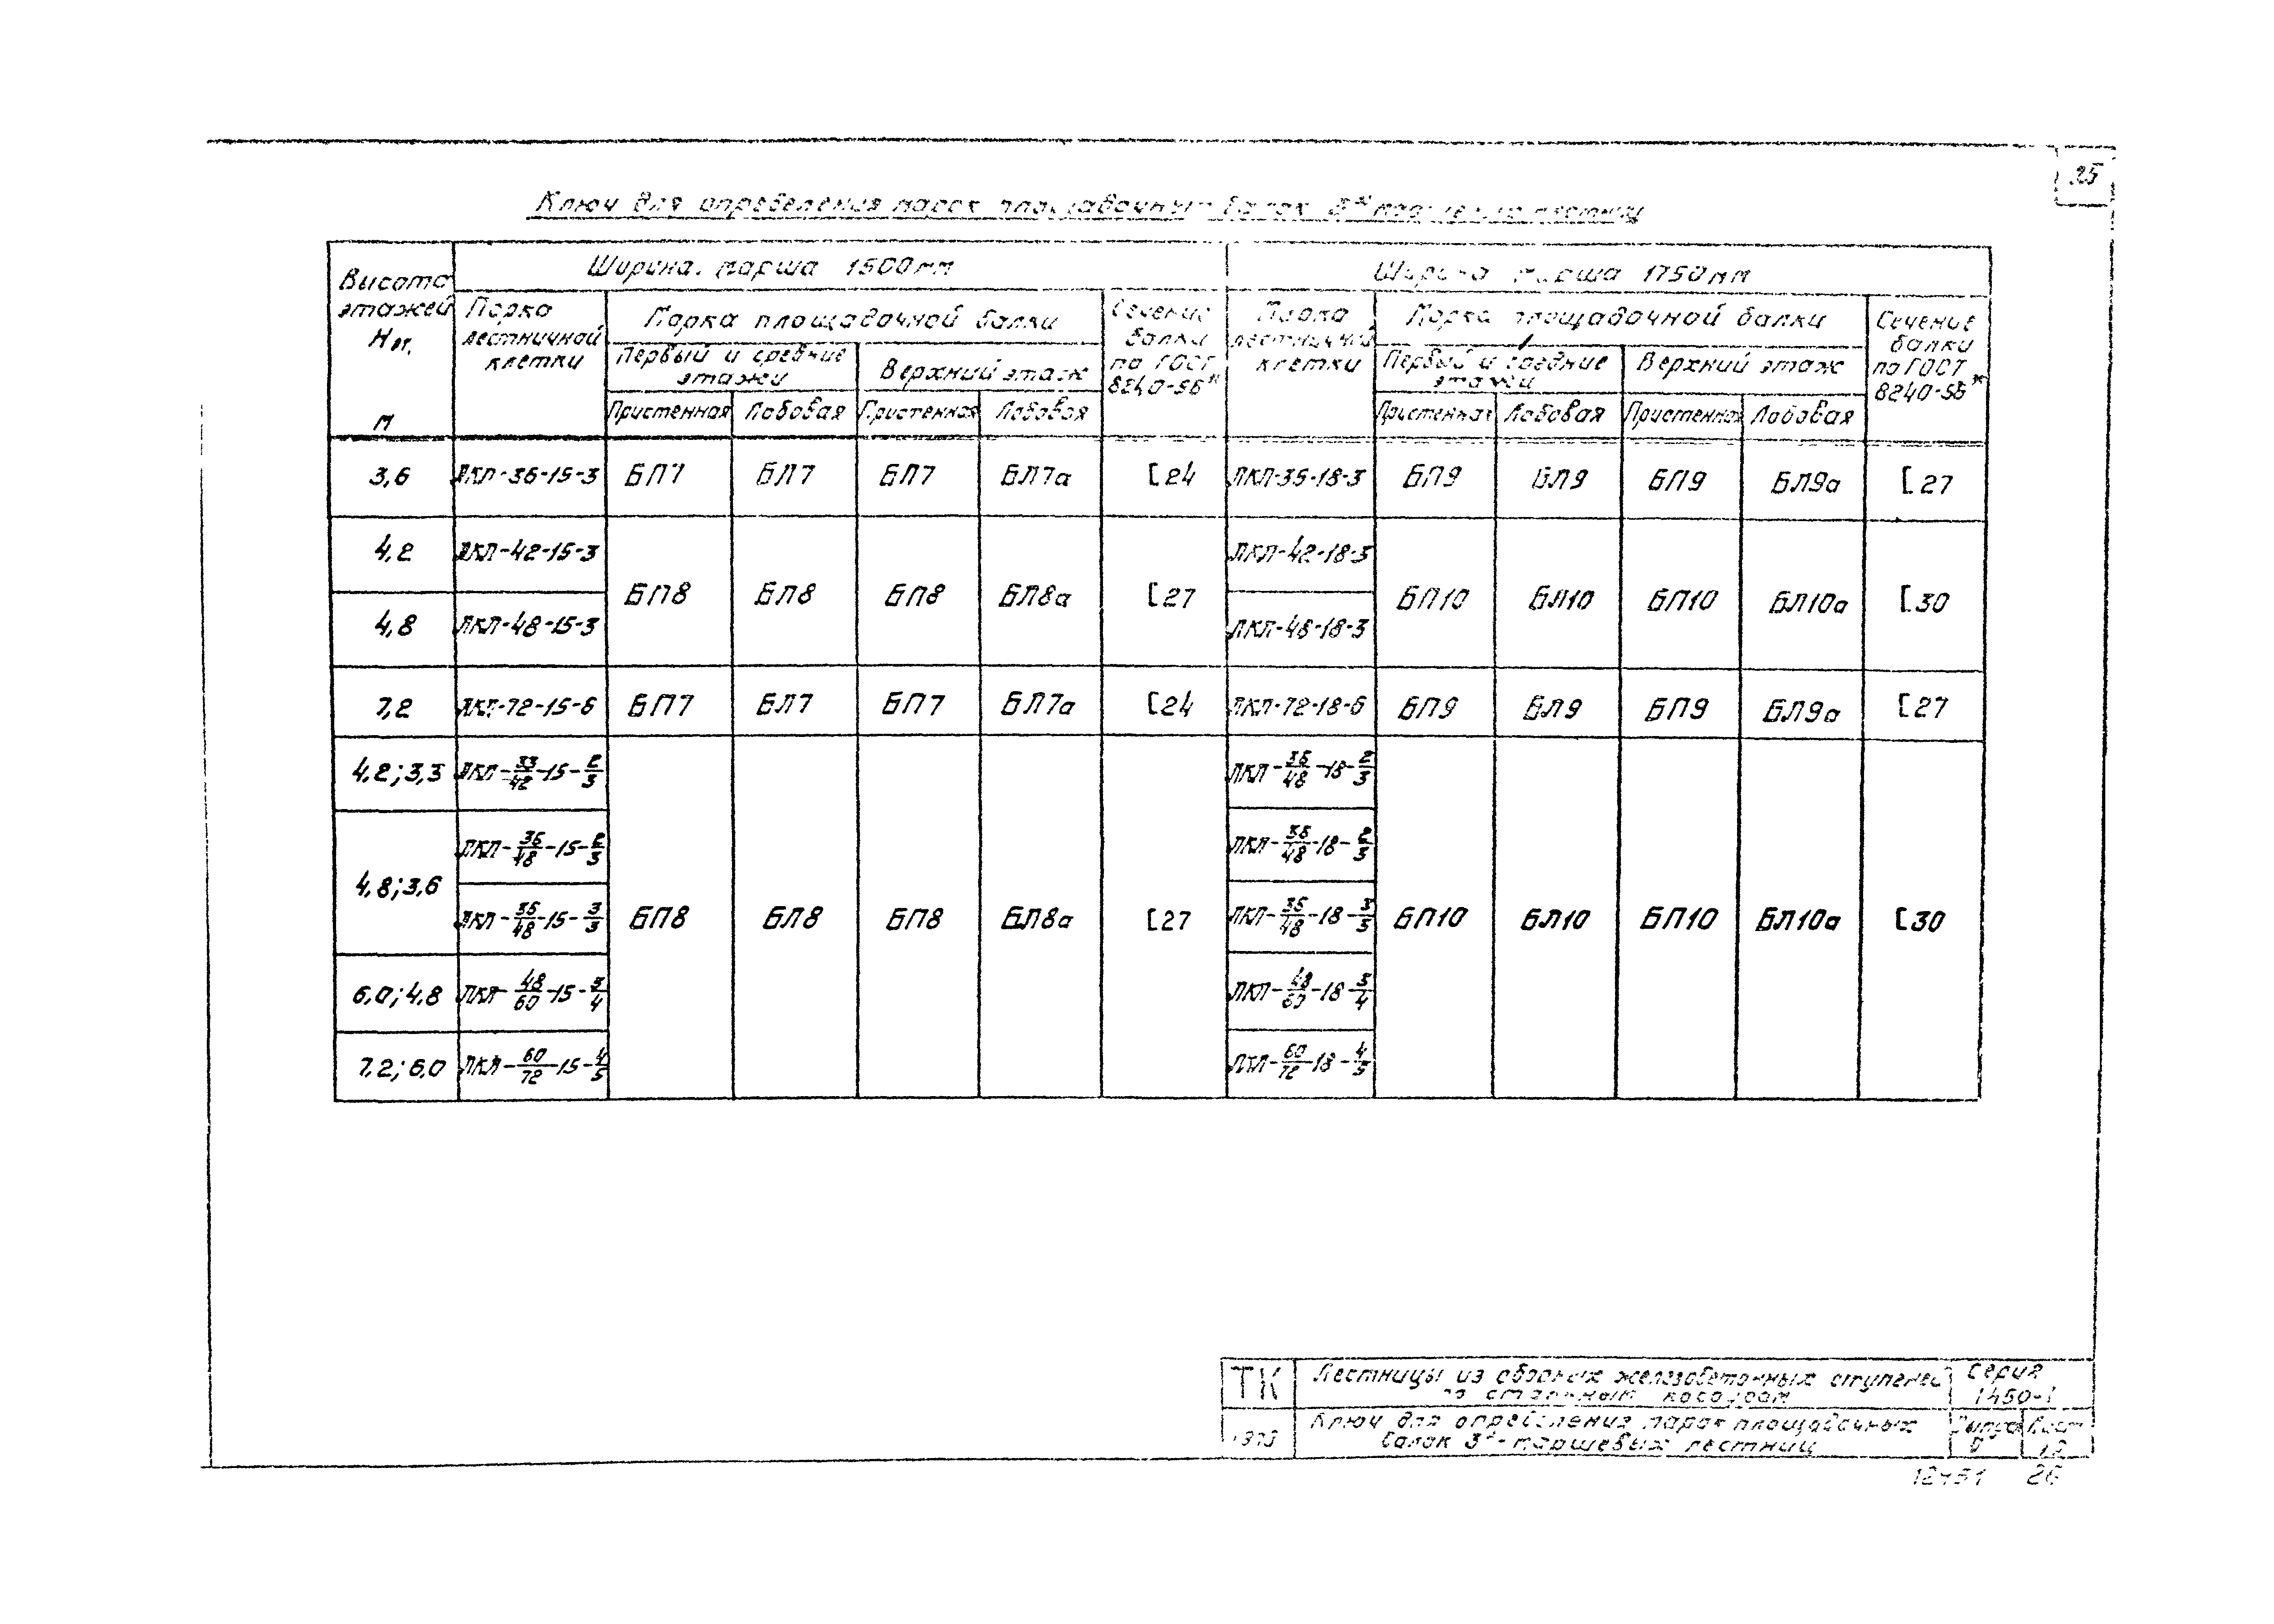 25
Ключ для определения марок площадочных балок 3х маршевых лестниц
Высота этажей Нэт. м
Ширина марша 1500 мм
Ширина марша 1750 мм
Марка лестничной клетки
Марка площадочной балки
Сечение балки по ГОСТ 8240-56*
Марка лестничной клетки
Марка площадочной балки
Сечение балки по ГОСТ 8240-56*
Первый и средние этажи
Верхний этаж
Первый и средние этажи
Верхний этаж
Пристенная Лобовая Пристенная Лобовая
Пристенная Лобовая Пристенная Лобовая
3,6 ЛКЛ-36-15-3 БП7 БЛ7 БП7 БЛ7а [24 ЛКЛ-36-18-3 БП9 БЛ9 БП9 БЛ9а [27
4,2 ЛКЛ-42-15-3 ЛКЛ-42-18-3
БП8 БЛ8 БП8 БЛ8а [27 БП10 БЛ10 БП10 БЛ10а [30
4,8 ЛКЛ-48-15-3 ЛКЛ-48-18-3
7,2 ЛКЛ-72-15-6 БП7 БЛ7 БП7 БЛ7а [24 ЛКЛ-72-18-6 БП9 БЛ9 БП9 БЛ9а [27
4,2; 3,3 ЛКЛ-33/42-15-2/3 ЛКЛ-36/48-18-2/3
ЛКЛ-36/48-15-2/3 ЛКЛ-36/48-18-2/3
4,8; 3,6
ЛКЛ-36/48-15-3/3 БП8 БЛ8 БП8 БЛ8а [27 ЛКЛ-36/48-18-3/3 БП10 БЛ10 БП10 БЛ10а [30
6,0; 4,8 ЛКЛ-48/60-15-3/4 ЛКЛ-48/60-18-3/4
7,2; 6,0 ЛКЛ-60/72-15-4/5 ЛКЛ-60/72-18-4/5
ТК
Лестницы из сборных железобетонных ступеней
по стальным косоурам
Серия
1450-1
Ключ для определения марок площадочных
балок 3х-маршевых лестниц
Выпуск 0
Лист
12451 26